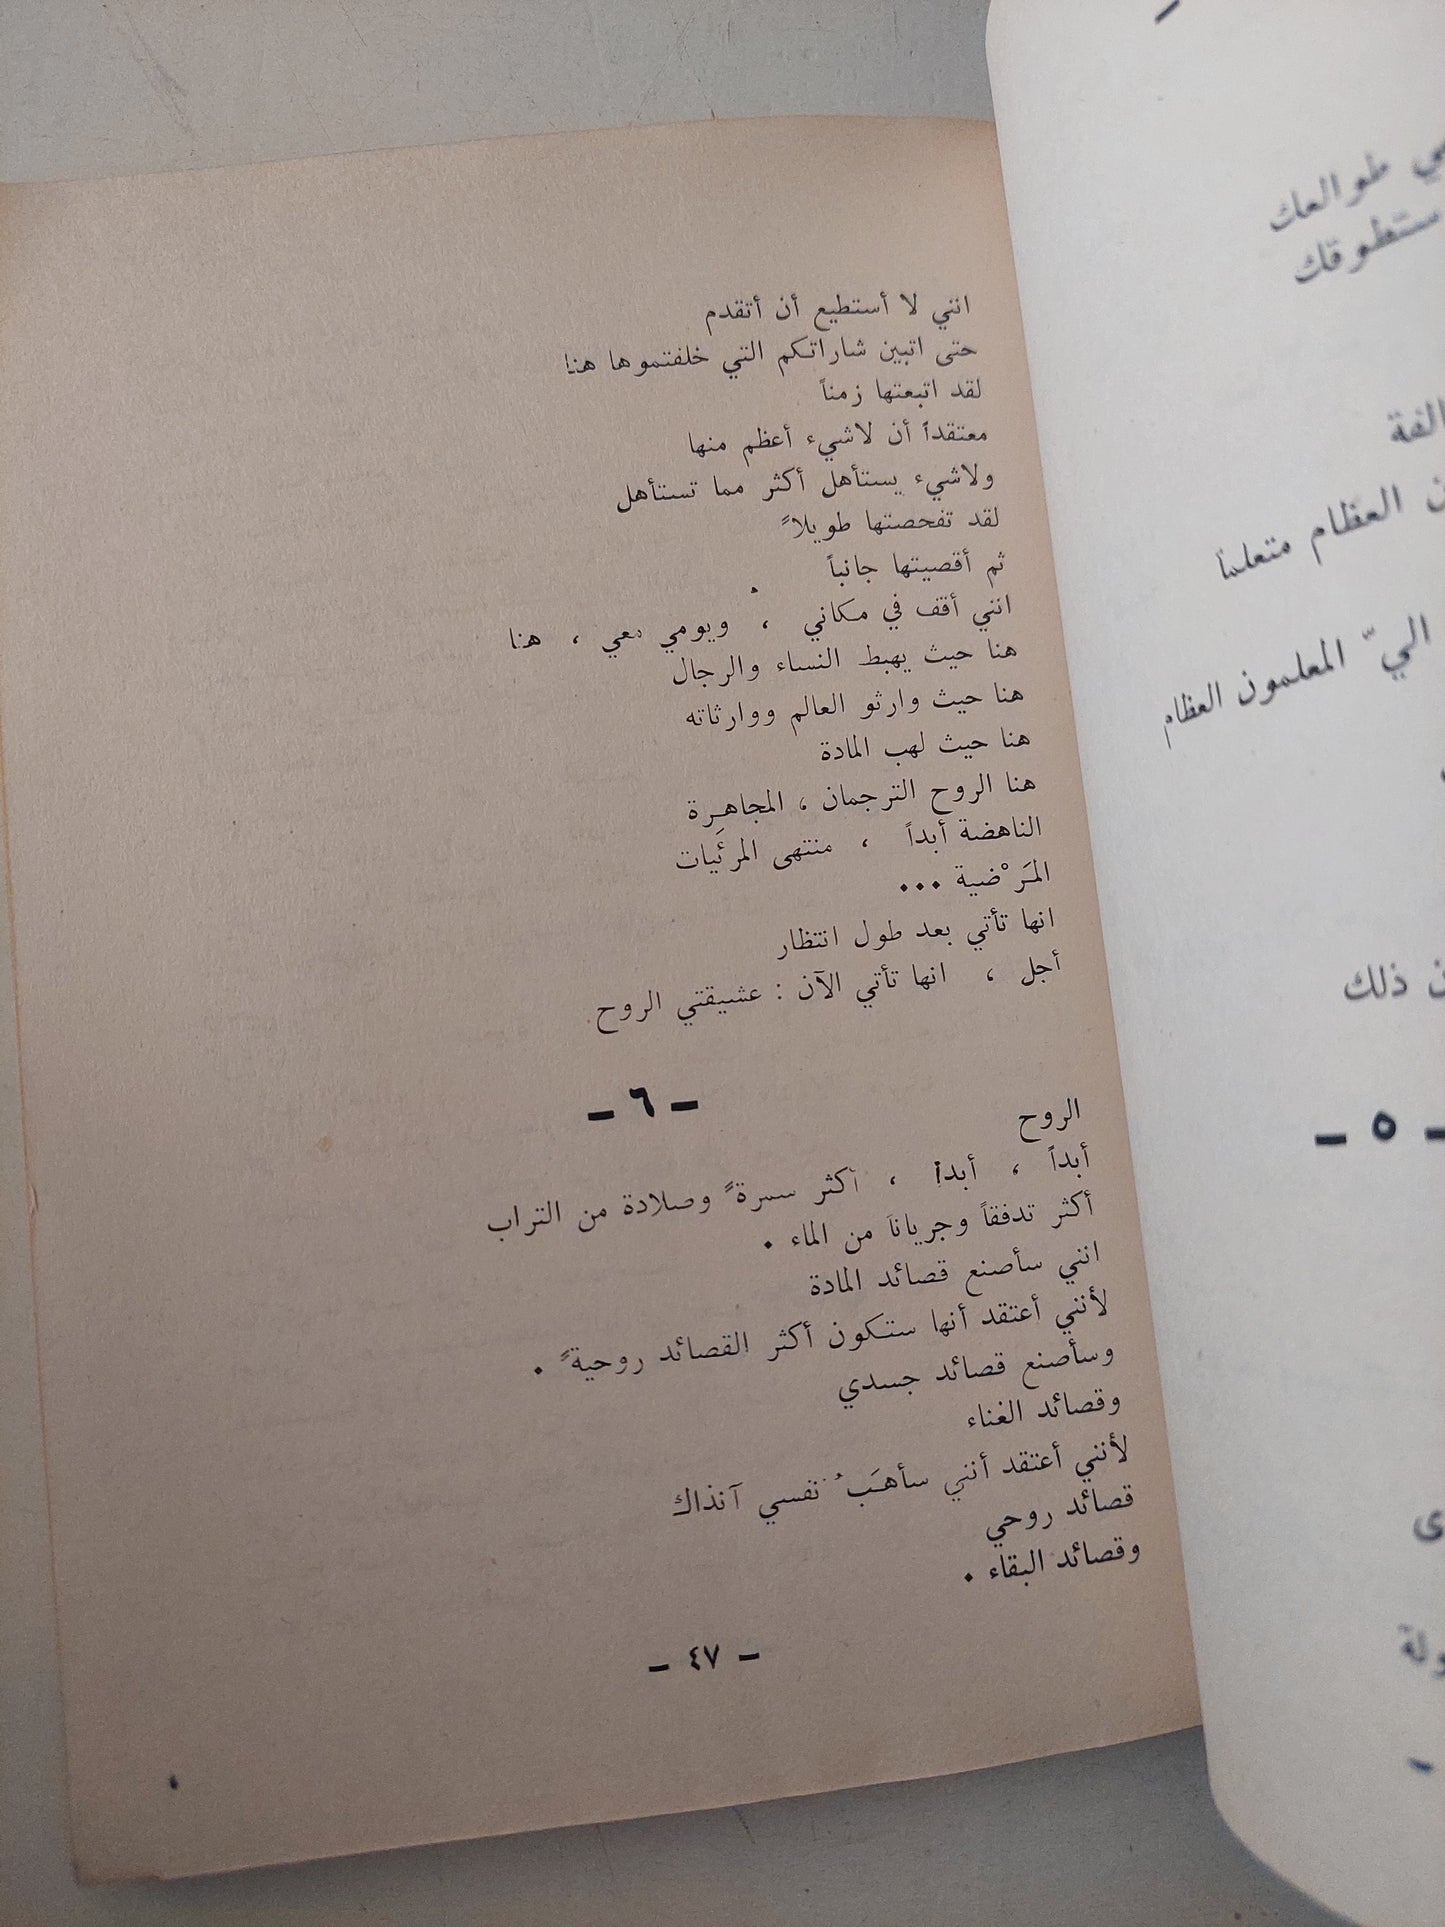 انني لا أستطيع أن أتقدم
حتى اتبين شاراتكم التي خلفتموها هنا
لقد اتبعتها زمناً
معتقداً أن لاشيء أعظم منها
ولاشيء يستأهل أكثر مما تستأهل
لقد تفحصتها طويلاً
ثم أقصيتها جانباً
انني أقف في مكاني ، ويومي معي ، هنا
هنا حيث يهبط النساء والرجال
هنا حيث وارثو العالم ووارثاته
هنا حيث لهب المادة
هنا الروح الترجمان ، المجاهِرة
الناهضة أبداً ، منتهى المرئيات
المَرْضية ...
انها تأتي بعد طول انتظار
أجل ، انها تأتي الآن : عشيقتي الروح
- ٦ -
الروح
أبداً ، أبداً ، أكثر سمرةً وصلادة من التراب
أكثر تدفقاً وجرياناً من الماء .
انني سأصنع قصائد المادة
لأنني أعتقد أنها ستكون أكثر القصائد روحيةً .
وسأصنع قصائد جسدي
وقصائد الفناء
لأنني أعتقد أنني سأهَبُ نفسي آنذاك
قصائد روحي
وقصائد البقاء .
- ٤٧ -
طوالعك
ستطوقك
العظام متعلماً
اليّ المعلمون العظام
ذلك
- ٥ -